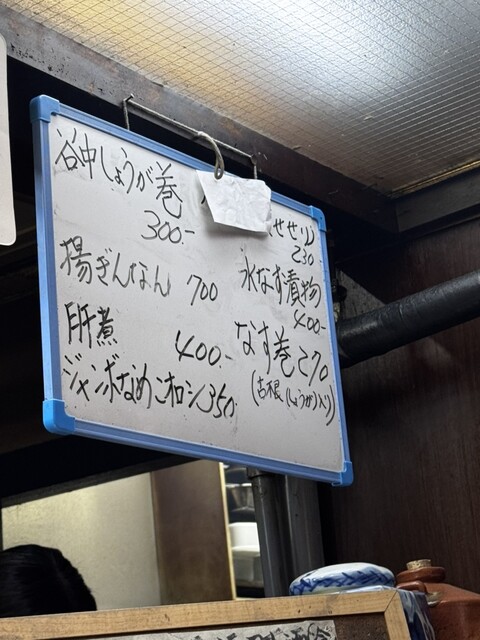 谷中しょうが巻
300.-
揚ぎんなん 700
肝煮
400.-
ジャンボなめこオロシ350.
せせり)
230.-
水なす漬物
400.-
なす巻270
(古根しょうが入り)